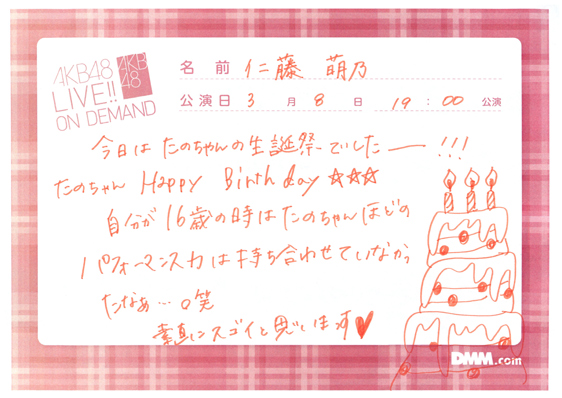 AKB48
LIVE!!
ON DEMAND
AKB
48
名 前 仁藤 萌乃
公演日 3 月 8 日 19 : 00 公演
今日は たのちゃんの生誕祭でしたー!!!
たのちゃん Happy Birthday ☆☆☆
自分が16歳の時はたのちゃんほどの
パフォーマンス力は持ち合わせていなかっ
たなぁ…。笑
素直にスゴイと思います♥
DMM.com